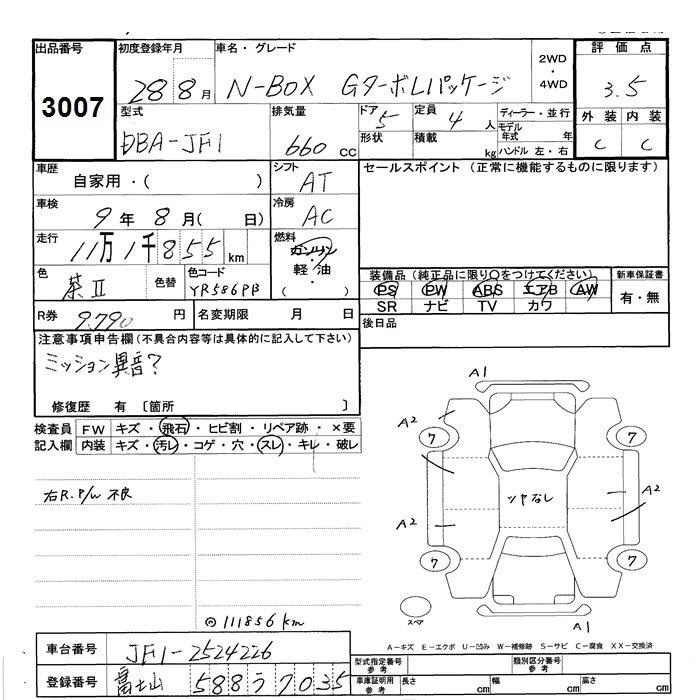 出品番号 3007
初度登録年月 28 8月
車名・グレード N-BOX GターボLパッケージ
2WD・4WD
評価点 3.5
外装 C 内装 C
型式 DBA-JF1
排気量 660 cc
ドア 5 形状
定員 4人 積載 kg
ディーラー・並行
モデル年式 年
ハンドル 左・右
車歴 自家用・( )
シフト AT
セールスポイント (正常に機能するものに限ります)
車検 9年 8月( 日)
冷房 AC
走行 11万1千855 km
燃料 ガソリン・軽油 ( )
色 茶II 色替
色コード YR586PB
装備品(純正品に限り○をつけてください)
PS PW ABS エアB AW
SR ナビ TV カワ
新車保証書 有・無
R券 9.790 円
名変期限 月 日
後日品
注意事項申告欄(不具合内容等は具体的に記入して下さい)
ミッション異音?
修復歴 有 〔箇所 〕
検査員記入欄
FW キズ・飛石・ヒビ割・リペア跡・×要
内装 キズ・汚レ・コゲ・穴・スレ・キレ・破レ
右R.P/W 不良
◎111856km
A1
A2
7 7
A2
ツヤなし
A2
7 7
スペア
A1
A-キズ E-エクボ U-凹み W-補修跡 S-サビ C-腐食 XX-交換済
車台番号 JF1-2524226
登録番号 富士山 588 う 7035
型式指定番号 参考
類別区分番号 参考
車庫証明用 参考 長さ cm 幅 cm 高さ cm